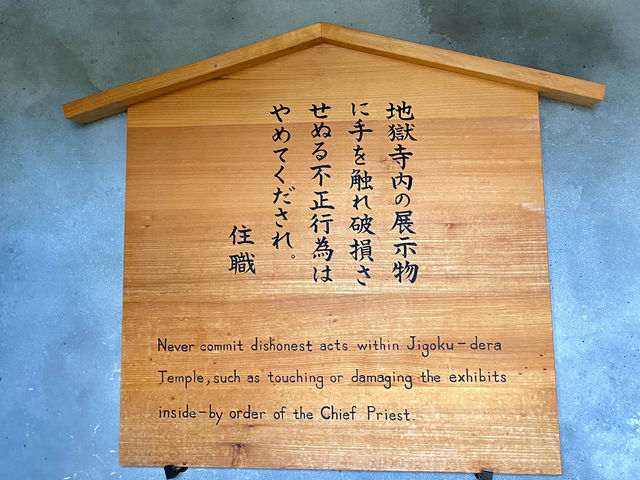 地獄寺内の展示物
に手を触れ破損さ
せぬる不正行為は
やめてくだされ。
住職
Never commit dishonest acts within Jigoku-dera
Temple, such as touching or damaging the exhibits
inside-by order of the Chief Priest.